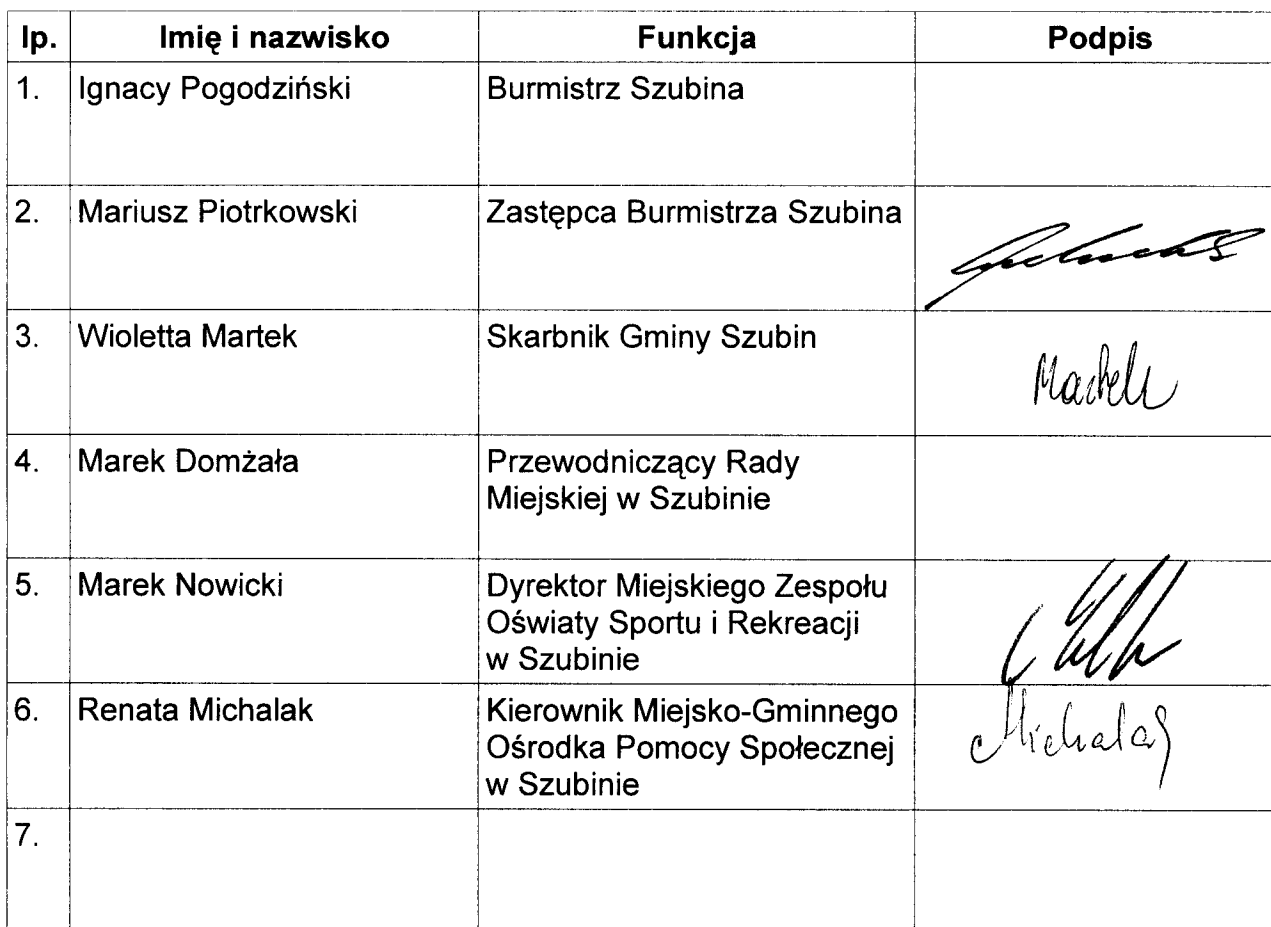 lp. Imię i nazwisko Funkcja Podpis
1. Ignacy Pogodziński Burmistrz Szubina
2. Mariusz Piotrkowski Zastępca Burmistrza Szubina
3. Wioletta Martek Skarbnik Gminy Szubin Martek
4. Marek Domżała Przewodniczący Rady
Miejskiej w Szubinie
5. Marek Nowicki Dyrektor Miejskiego Zespołu
Oświaty Sportu i Rekreacji
w Szubinie
6. Renata Michalak Kierownik Miejsko-Gminnego Michalak
Ośrodka Pomocy Społecznej
w Szubinie
7.